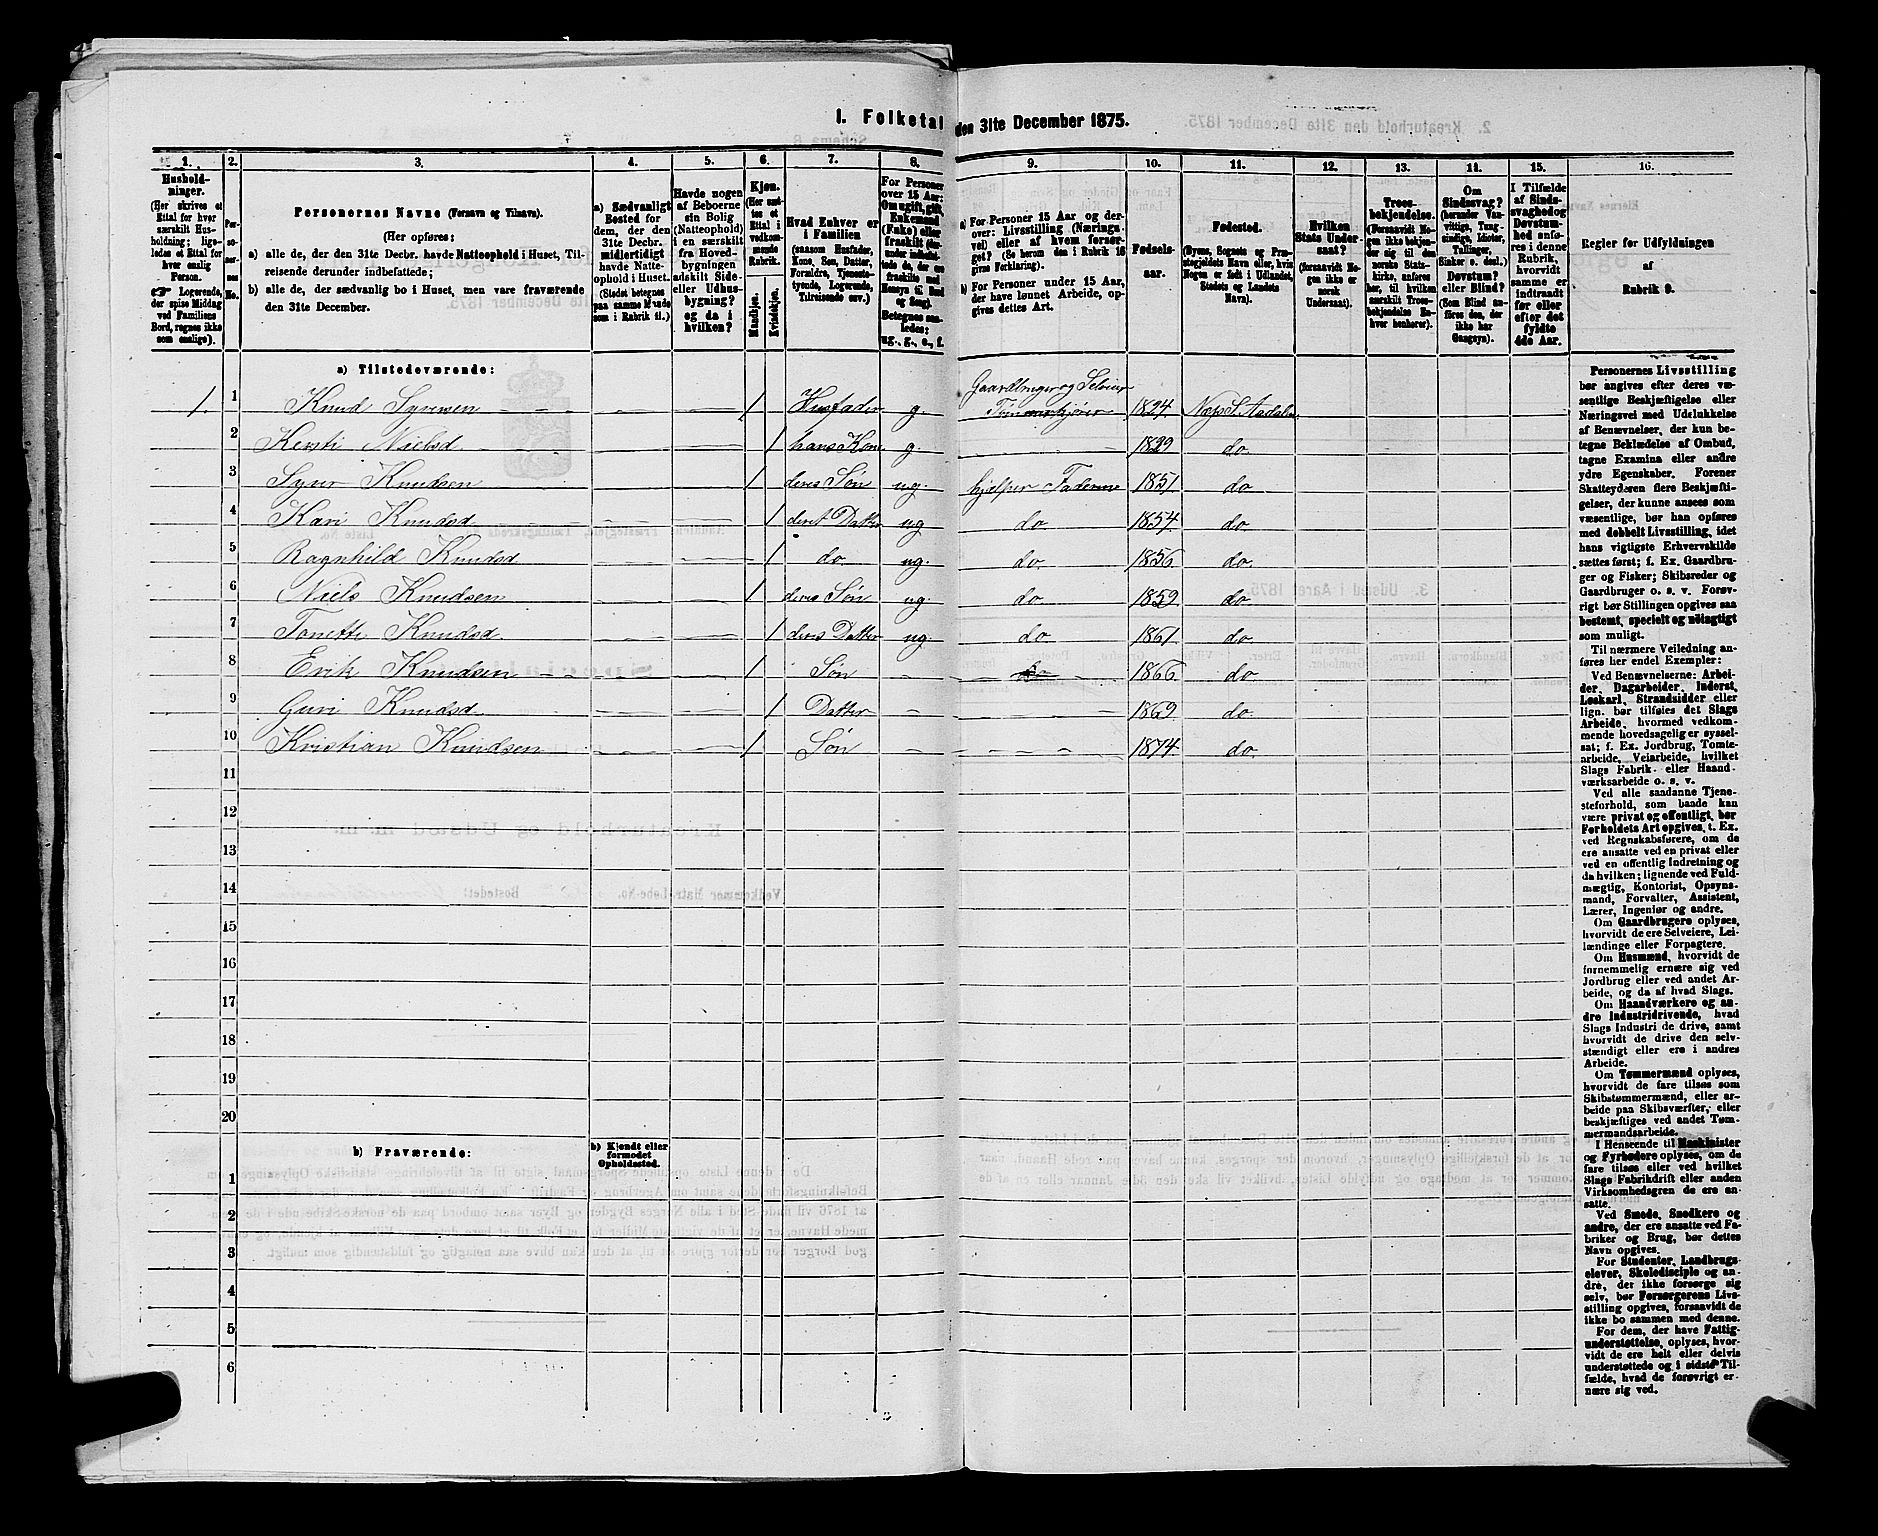 1. Folketal den 31te December 1875.
1. 2. 3. 4. 5. 6. 7. 8. 9. 10. 11. 12. 13. 14. 15. 16.
Hushold-
ninger.
(Her skrives et
Ettal for hver
særskilt Hus-
holdning; lige-
ledes et Ettal for
hver enslig
Person.
☞ Logerende,
der spise Middag
ved Familiens
Bord, regnes ikke
som enslige).
Per-
so-
ner-
nes
No.
Personernes Navne (Fornavn og Tilnavn).
(Her opføres:
a) alle de, der den 31te Decbr. havde Natteophold i Huset, Til-
reisende derunder indbefattede;
b) alle de, der sædvanlig bo i Huset, men vare fraværende
den 31te December.
a) Sædvanligt
Bosted for
dem, der den
31te Decbr.
midlertidigt
havde Natte-
ophold i Huset.
(Stedet betegnes
paa samme Maade
som i Rubrik 11.)
Havde nogen
af Beboerne
sin Bolig
(Natteophold)
i en særskilt
fra Hoved-
bygningen
adskilt Side-
eller Udhus-
bygning?
og da i
hvilken?
Kjøn.
(Her sæt-
tes et
Ettal i
vedkom-
mende
Rubrik.
Mandkjøn.
Kvindekjøn.
Hvad Enhver er
i Familien
(saasom Husfader,
Kone, Søn, Datter,
Forældre, Tjeneste-
tyende, Logerende,
Tilreisende osv.)
For Personer
over 15 Aar:
Om ugift, gift,
Enkemand
(Enke) eller
fraskilt
Betegnes saa-
ledes:
ug., g., e., f.
a) For Personer 15 Aar og der-
over: Livsstilling (Nærings-
vei) eller af hvem forsør-
get? (Se herom den i Rubrik 16
givne Forklaring).
b) For Personer under 15 Aar,
der have lønnet Arbeide, op-
gives dettes Art.
Fødsels-
aar.
Fødested.
(Byens, Sognets og Præ-
stegjeldets Navn eller, hvis
Nogen er født i Udlandet,
Stedets og Landets
Navn).
Hvilken
Stats Under-
saat?
(forsaavidt No-
gen ikke er
norsk
Undersaat).
Troes-
bekjendelse.
(Forsaavidt No-
gen ikke bekjen-
der sig til den
norske Stats-
kirke, anføres
her, til hvilken
særskilt Troes-
bekjendelse En-
hver henhører).
Om
Sindssvag?
(herunder Van-
vittige, Tung-
sindige, Idioter,
Tullinger,
Sinker o. desl.)
Døvstum?
eller Blind?
(Som Blind an-
føres den, der
ikke har
Gangsyn).
I Tilfælde
af Sinds-
svaghed og
Døvstum-
hed anfø-
res i denne
Rubrik,
hvorvidt
samme er
indtraadt
før eller
efter det
fyldte
4de Aar.
Regler for Udfyldningen
af
Rubrik 9.
a) Tilstedeværende:
1. 1 Knud Syversen 1 Husfader g. Gaardbruger og Selveier Tømmerkjører 1824 Næs S. Aadalen
2 Kersti Nielsd 1 hans Kone g. 1829 do.
3 Syver Knudsen 1 deres Søn ug. hjælper Faderen 1851 do
4 Kari Knudsd 1 deres Datter ug do 1854 do.
5 Ragnhild Knudsd 1 do. ug. do. 1856 do.
6 Niels Knudsen 1 deres Søn ug. do. 1859 do.
7 Tonette Knudsd. 1 deres Datter ug. do 1861 do
8 Erik Knudsen 1 Søn do 1866 do
9 Guri Knudsd 1 Datter 1869 do.
10 Kristian Knudsen 1 Søn 1874 do.
11
12
13
14
15
16
17
18
19
20
b) Fraværende:
b) Kjendt eller
formodet
Opholdssted.
1
2
3
4
5
6
Personernes Livsstilling
bør angives efter deres væ-
sentlige Beskjæftigelse eller
Næringsvei med Udelukkelse
af Benævnelser, der kun be-
tegne Beklædelse af Ombud,
tagne Examina eller andre
ydre Egenskaber. Forener
Skatteyderen flere Beskjæfti-
gelser, der kunne ansees som
væsentlige, bør han opføres
med dobbelt Livsstilling, idet
hans vigtigste Erhvervskilde
sættes først; f. Ex. Gaardbru-
ger og Fisker; Skibsreder og
Gaardbruger o. s. v. Forøv-
rigt bør Stillingen opgives saa
bestemt, specielt og nøiagtigt
som muligt.
Til nærmere Veiledning an-
føres her endel Exempler:
Ved Benævnelserne: Arbei-
der, Dagarbeider, Inderst,
Løskarl, Strandsidder eller
lign. bør tilføies det Slags
Arbeide, hvormed vedkom-
mende hovedsagelig er syssel-
sat; f. Ex. Jordbrug, Tomte-
arbeide, Veiarbeide, hvilket
Slags Fabrik- eller Haand-
værksarbeide o. s. v.
Ved alle saadanne Tjene-
steforhold, som baade kan
være privat og offentligt, bør
Forholdets Art opgives, t. Ex.
ved Regnskabsførere, om de
ere ansatte ved en privat eller
ved en offentlig Indretning og
da hvilken; lignende ved Fuld-
mægtig, Kontorist, Opsyns-
mand, Forvalter, Assistent,
Lærer, Ingeniør og andre.
Om Gaardbrugere oplyses,
hvorvidt de ere Selveiere, Lei-
lændinge eller Forpagtere.
Om Husmænd, hvorvidt de
fornemmelig ernære sig ved
Jordbrug eller ved andet Ar-
beide, og da af hvad Slags.
Om Haandværkere og an-
dre Industridrivende, hvad
Slags Industri de drive, samt
hvorvidt de drive den selv-
stændigt eller ere i andres
Arbeide.
Om Tømmermænd oplyses,
hvorvidt de fare tilsøs som
Skibstømmermænd, eller ar-
beide paa Skibsværfter, eller
beskjæftiges ved andet Tøm-
mermandsarbeide.
I Henseende til Maskinister
og Fyrbødere oplyses, om de
fare tilsøs eller ved hvilket
Slags Fabrikdrift eller anden
Virksomhedsgren de ere an-
satte.
Ved Smede, Snedkere og
andre, der ere ansatte ved Fa-
briker og Brug, bør dettes
Navn opgives.
For Studenter, Landbrugs-
elever, Skoledisciple og an-
dre, der ikke forsørge sig
selv, bør Forsørgerens Livs-
stilling opgives, forsaavidt de
ikke bo sammen med denne.
For dem, der have Fattig-
understøttelse, oplyses, hvor-
vidt de ere helt eller delvis
understøttede og i sidste Til-
fælde, hvad de forøvrigt er-
nære sig ved.